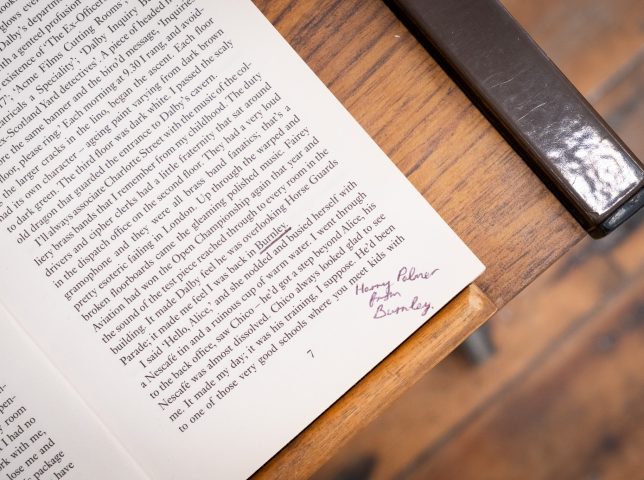 glows over
Dalby's department
with a genteel profusion
existence of 'The Ex-Officer
'Acme Films Cutting Rooms
a Speciality'; 'Dalby Inquiry B
-Scotland Yard detectives'. A piece of headed
ore the same banner and the biro'd message, 'Inquiries
floor, please ring.' Each morning at 9.30 I rang, and avoid-
the larger cracks in the lino, began the ascent. Each floor
had its own character – ageing paint varying from dark brown
to dark green. The third floor was dark white. I passed the scaly
old dragon that guarded the entrance to Dalby's cavern.
I'll always associate Charlotte Street with the music of the col-
liery brass bands that I remember from my childhood. The duty
drivers and cipher clerks had a little fraternity that sat around
in the dispatch office on the second floor. They had a very loud
gramophone and they were all brass band fanatics; that's a
pretty esoteric failing in London. Up through the warped and
broken floorboards came the gleaming polished music. Fairey
Aviation had won the Open Championship again that year and
the sound of the test piece reached through to every room in the
building. It made Dalby feel he was overlooking Horse Guards
Parade; it made me feel I was back in Burnley.
I said 'Hello, Alice,' and she nodded and busied herself with
a Nescafé tin and a ruinous cup of warm water. I went through
to the back office, saw Chico – he'd got a step beyond Alice, his
Nescafé was almost dissolved. Chico always looked glad to see
me. It made my day; it was his training, I suppose. He'd been
to one of those very good schools where you meet kids with
7
Harry Palmer
from
Burnley.
pen-
y room
I had no
ork with me,
lose me and
's package
have